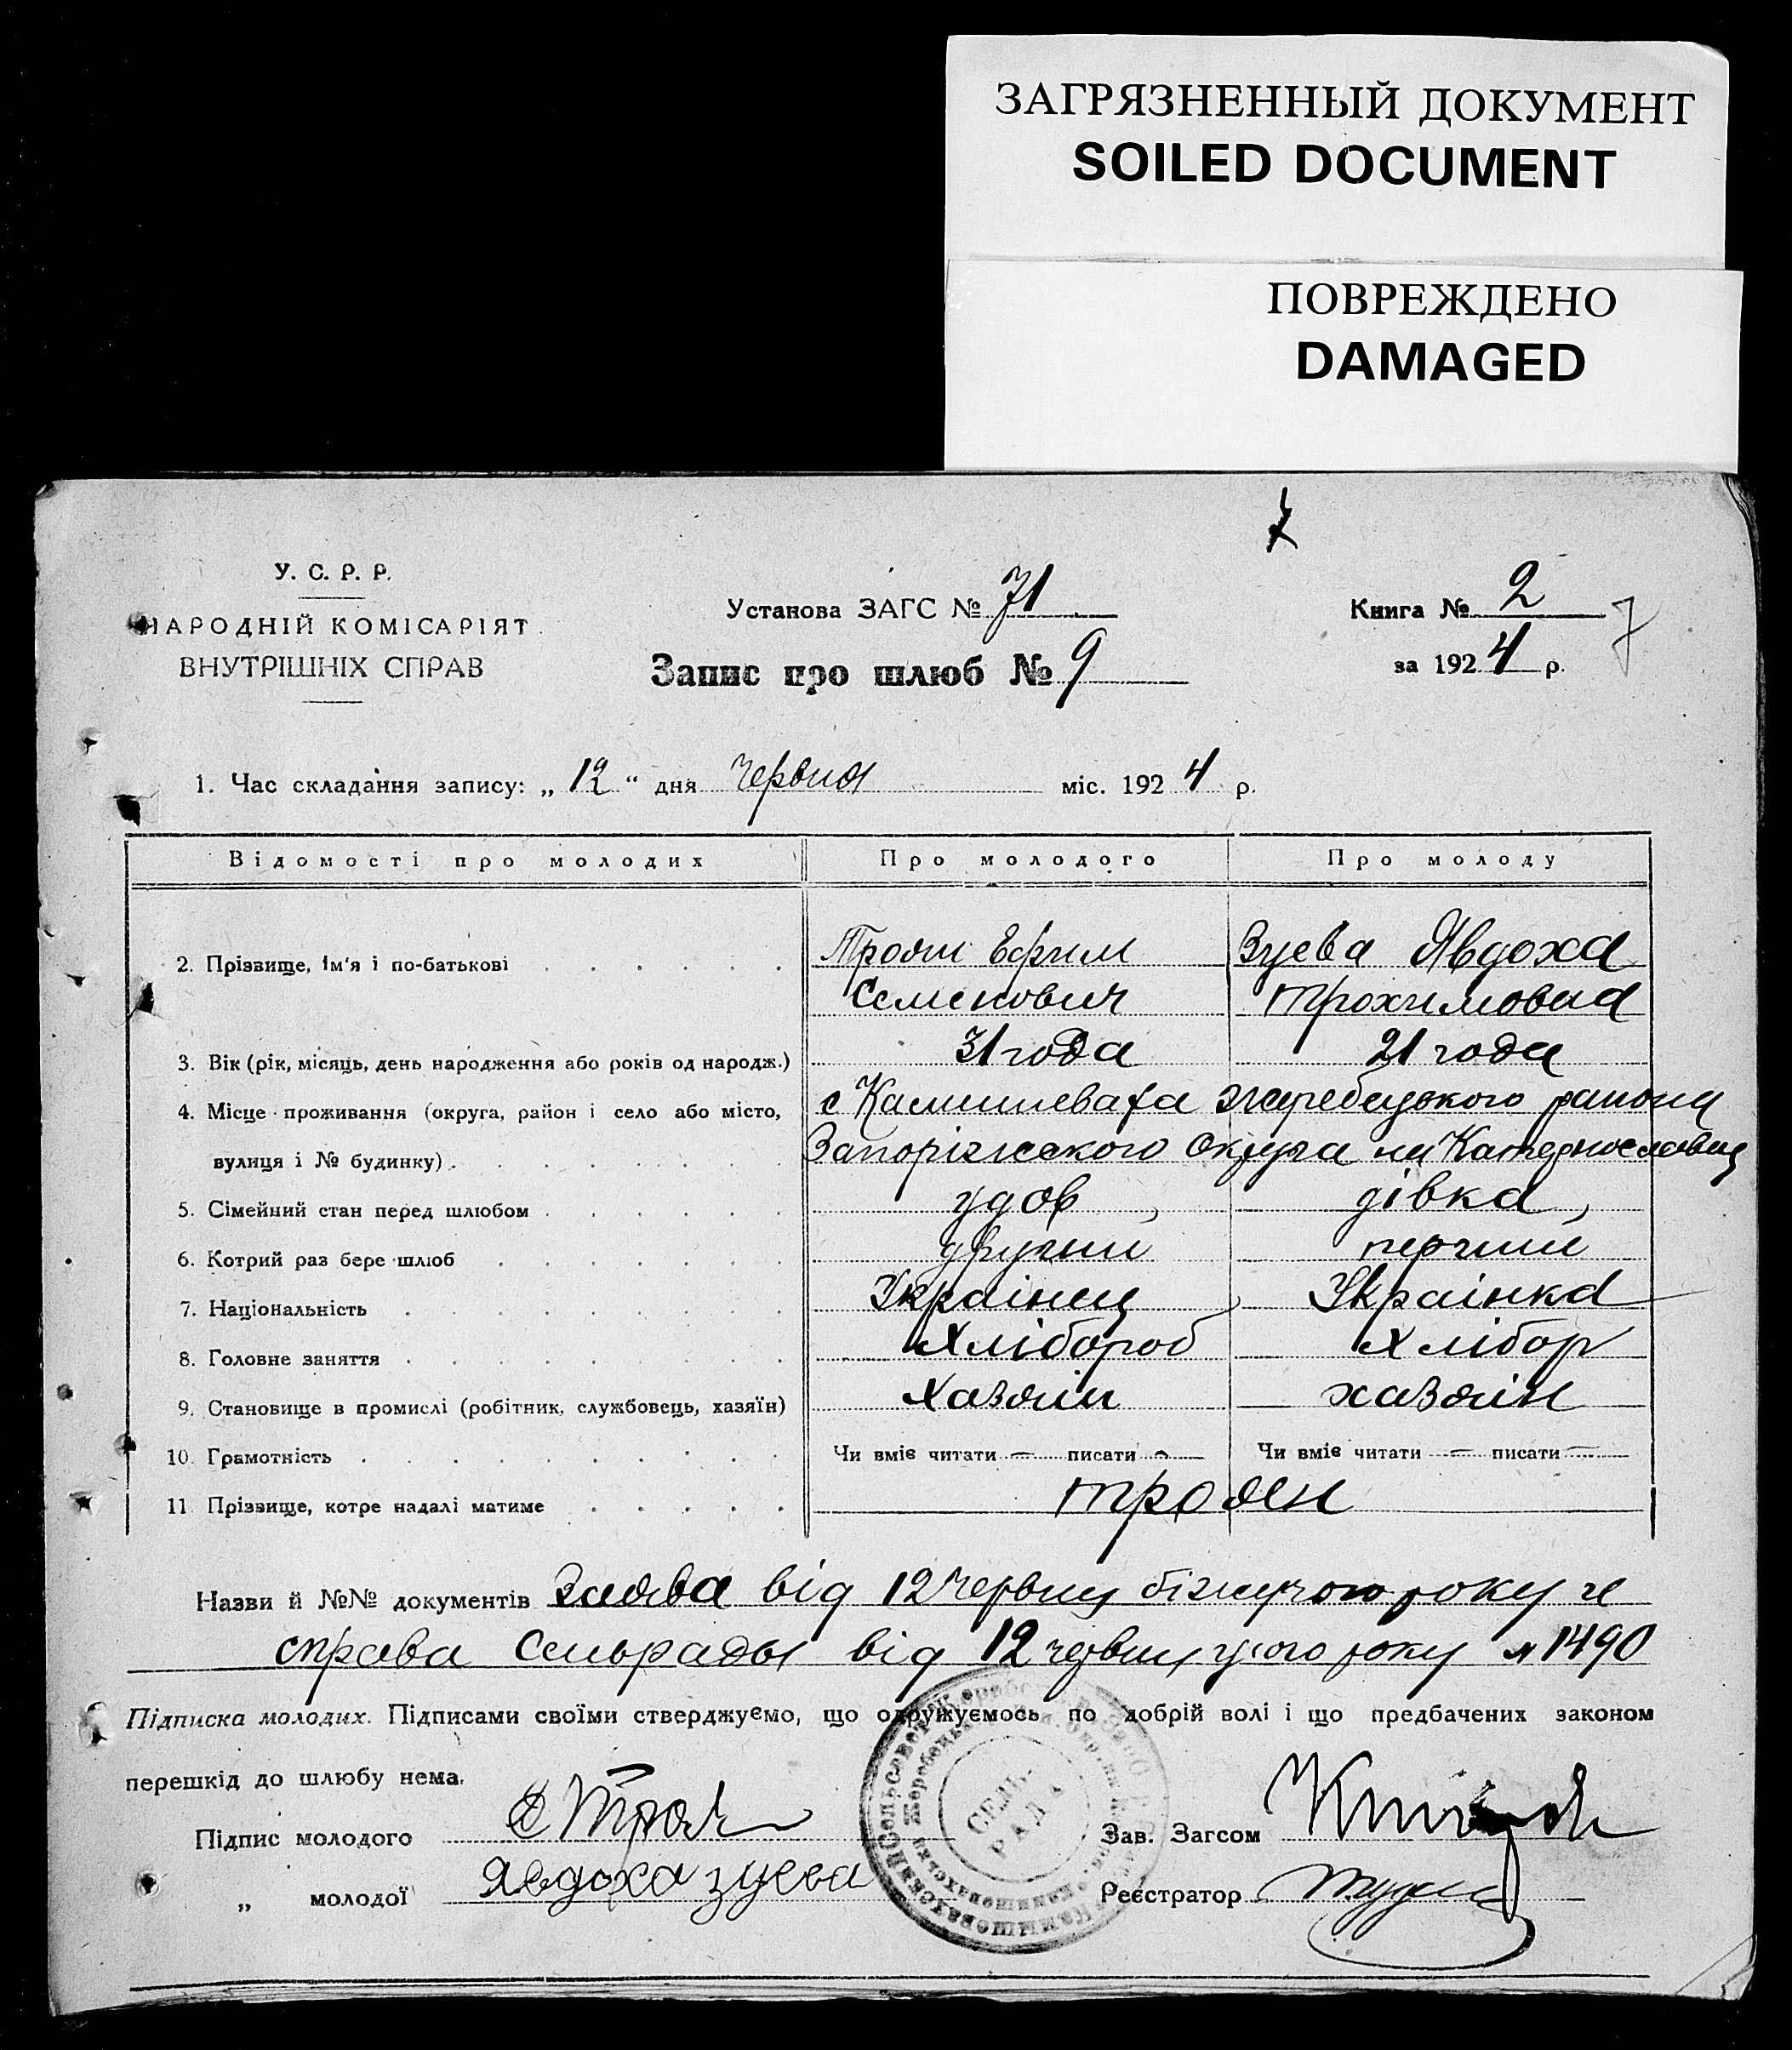 ЗАГРЯЗНЕННЫЙ ДОКУМЕНТ
SOILED DOCUMENT
ПОВРЕЖДЕНО
DAMAGED
7
У. С. Р. Р.
НАРОДНІЙ КОМІСАРІЯТ
ВНУТРІШНІХ СПРАВ
Установа ЗАГС № 71
Запис про шлюб № 9
Книга № 2
7
за 1924 р.
1. Час складання запису: „12“ дня червня міс. 1924 р.
Відомості про молодих Про молодого Про молоду
2. Прізвище, ім'я і по-батькові Троян Ефим Зуева Явдоха
Семенович Трохимовна
3. Вік (рік, місяць, день народження або років од народж.) 31 года 21 года
4. Місце проживання (округа, район і село або місто, с Камишевата Жеребецького района
вулиця і № будинку) Запорізського Округа на Катеринославщ
5. Сімейний стан перед шлюбом удов, дівка,
6. Котрий раз бере шлюб другии перчии
7. Національність Украінец Украінка
8. Головне заняття Хлібороб Хлібор
9. Становище в промислі (робітник, службовець, хазяїн) Хазяін хазяін
10. Грамотність Чи вміє читати — писати — Чи вміє читати — писати —
11. Прізвище, котре надалі матиме Троян
Назви й №№ документів Заява від 12 червня біжучого року и
справа Сельрады від 12 червня цього року № 1490
Підписка молодих. Підписами своїми стверджуємо, що одружуємось по добрій волі і що предбачених законом
перешкід до шлюбу нема.
СЕЛЬ-
РАДА
Підпис молодого Е Троян
Зав. Загсом
„ молодої Явдоха зуева
Реєстратор